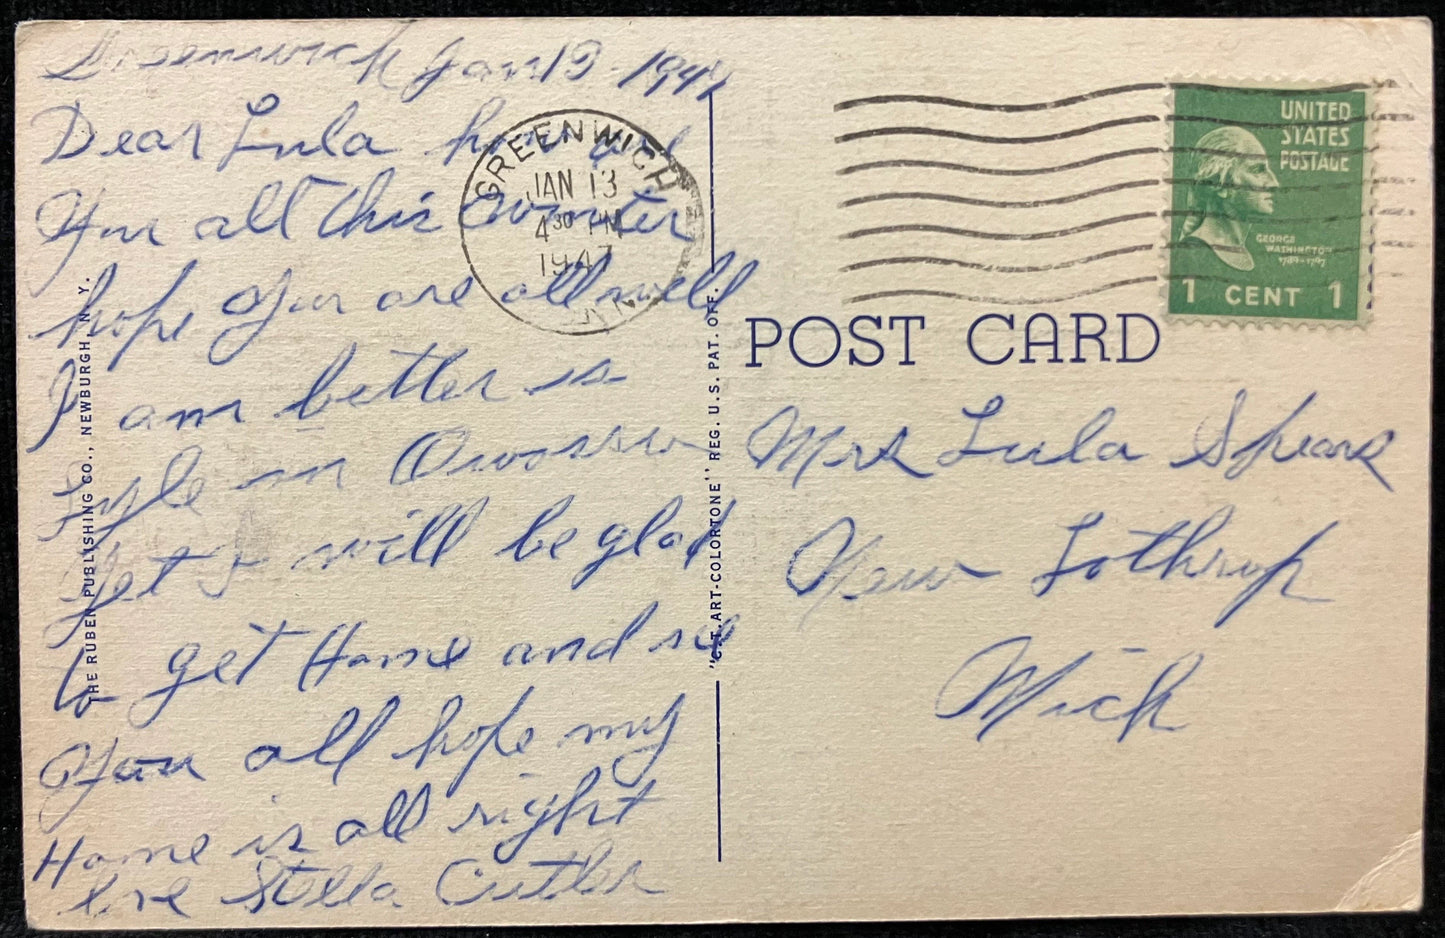 Greenwich Jan 13 1947
Dear Lula how are
You all this winter
hope You are all well
I am better is
Lyle in Owosso
Yet I will be glad
to get Home and see
You all hope my
Home is all right
Stella Cutler
GREENWICH
JAN 13
4 30 PM
1947
N.Y.
UNITED
STATES
POSTAGE
GEORGE
WASHINGTON
1789-1797
1 CENT 1
POST CARD
Mrs Lula Spears
New Lothrop
Mich
THE RUBEN PUBLISHING CO., NEWBURGH, N. Y.
"C.T. ART-COLORTONE" REG. U.S. PAT. OFF.